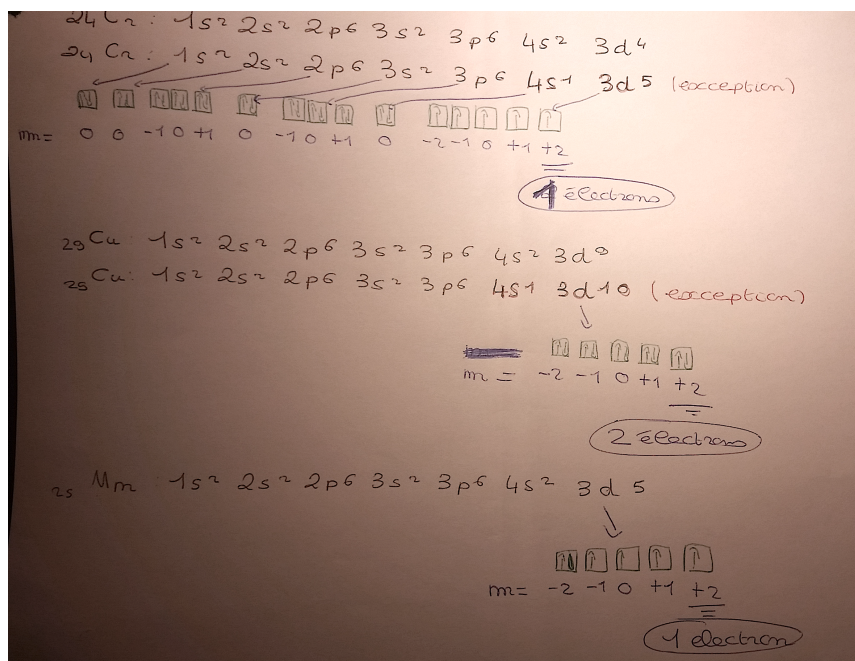 24 Cr : 1s² 2s² 2p6 3s² 3p6 4s² 3d4
24 Cr : 1s² 2s² 2p6 3s² 3p6 4s1 3d5 (exception)
m = 0 0 -1 0 +1 0 -1 0 +1 0 -2 -1 0 +1 +2
1 électrons
29 Cu : 1s² 2s² 2p6 3s² 3p6 4s² 3d9
29 Cu : 1s² 2s² 2p6 3s² 3p6 4s1 3d10 (exception)
m = -2 -1 0 +1 +2
2 électrons
25 Mn 1s² 2s² 2p6 3s² 3p6 4s² 3d5
m= -2 -1 0 +1 +2
1 electron